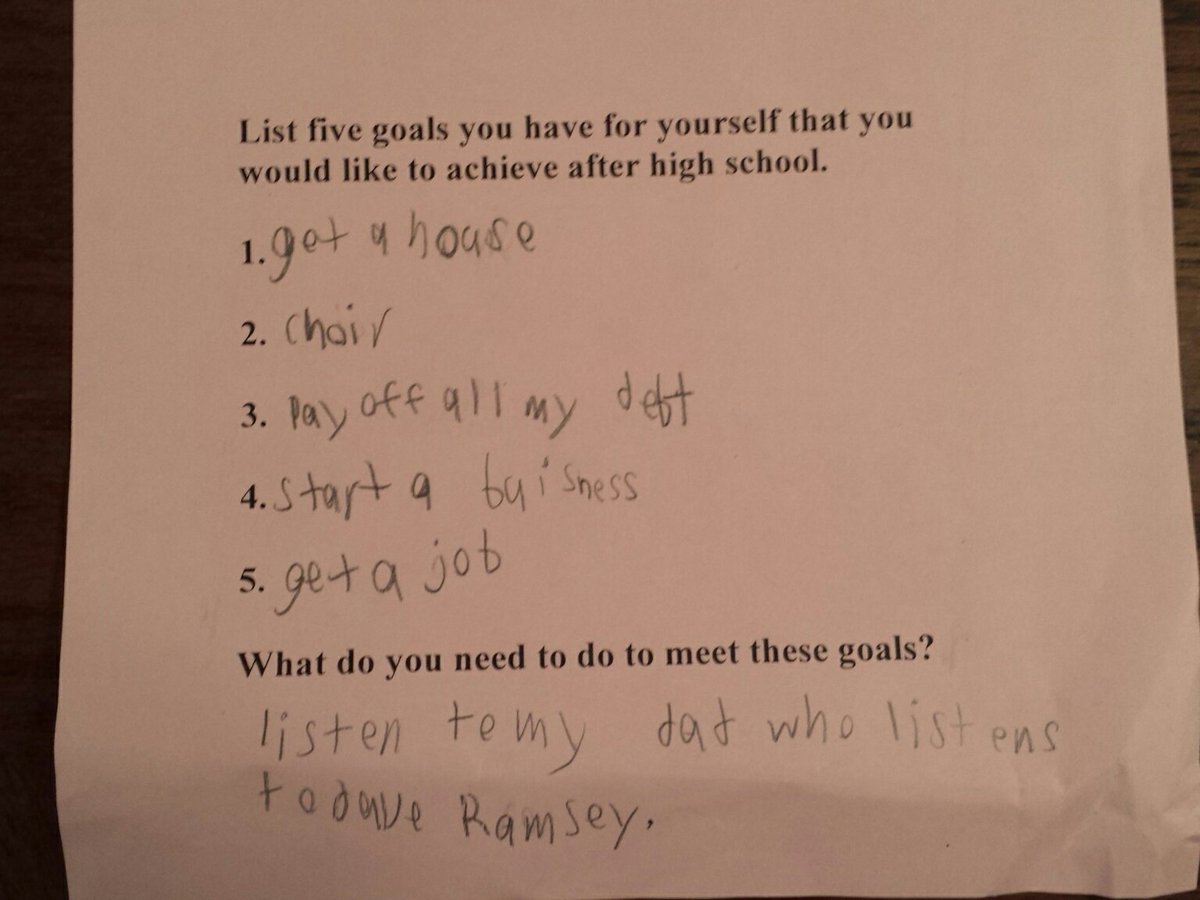 List five goals you have for yourself that you
would like to achieve after high school.
1. get a house
2. choir
3. Pay off all my debt
4. start a buisness
5. get a job
What do you need to do to meet these goals?
listen to my dad who listens
to dave Ramsey.